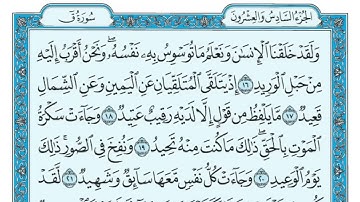 الجُزْءُ السَّادِسُ وَالعِشْرُونَ
سُورَةُ قٓ
وَلَقَدْ خَلَقْنَا ٱلْإِنسَٰنَ وَنَعْلَمُ مَا تُوَسْوِسُ بِهِۦ نَفْسُهُۥ ۖ وَنَحْنُ أَقْرَبُ إِلَيْهِ
مِنْ حَبْلِ ٱلْوَرِيدِ ١٦ إِذْ يَتَلَقَّى ٱلْمُتَلَقِّيَانِ عَنِ ٱلْيَمِينِ وَعَنِ ٱلشِّمَالِ
قَعِيدٌ ١٧ مَّا يَلْفِظُ مِن قَوْلٍ إِلَّا لَدَيْهِ رَقِيبٌ عَتِيدٌ ١٨ وَجَآءَتْ سَكْرَةُ
ٱلْمَوْتِ بِٱلْحَقِّ ۖ ذَٰلِكَ مَا كُنتَ مِنْهُ تَحِيدُ ١٩ وَنُفِخَ فِى ٱلصُّورِ ۚ ذَٰلِكَ
يَوْمُ ٱلْوَعِيدِ ٢٠ وَجَآءَتْ كُلُّ نَفْسٍ مَّعَهَا سَآئِقٌ وَشَهِيدٌ ٢١ لَّقَدْ